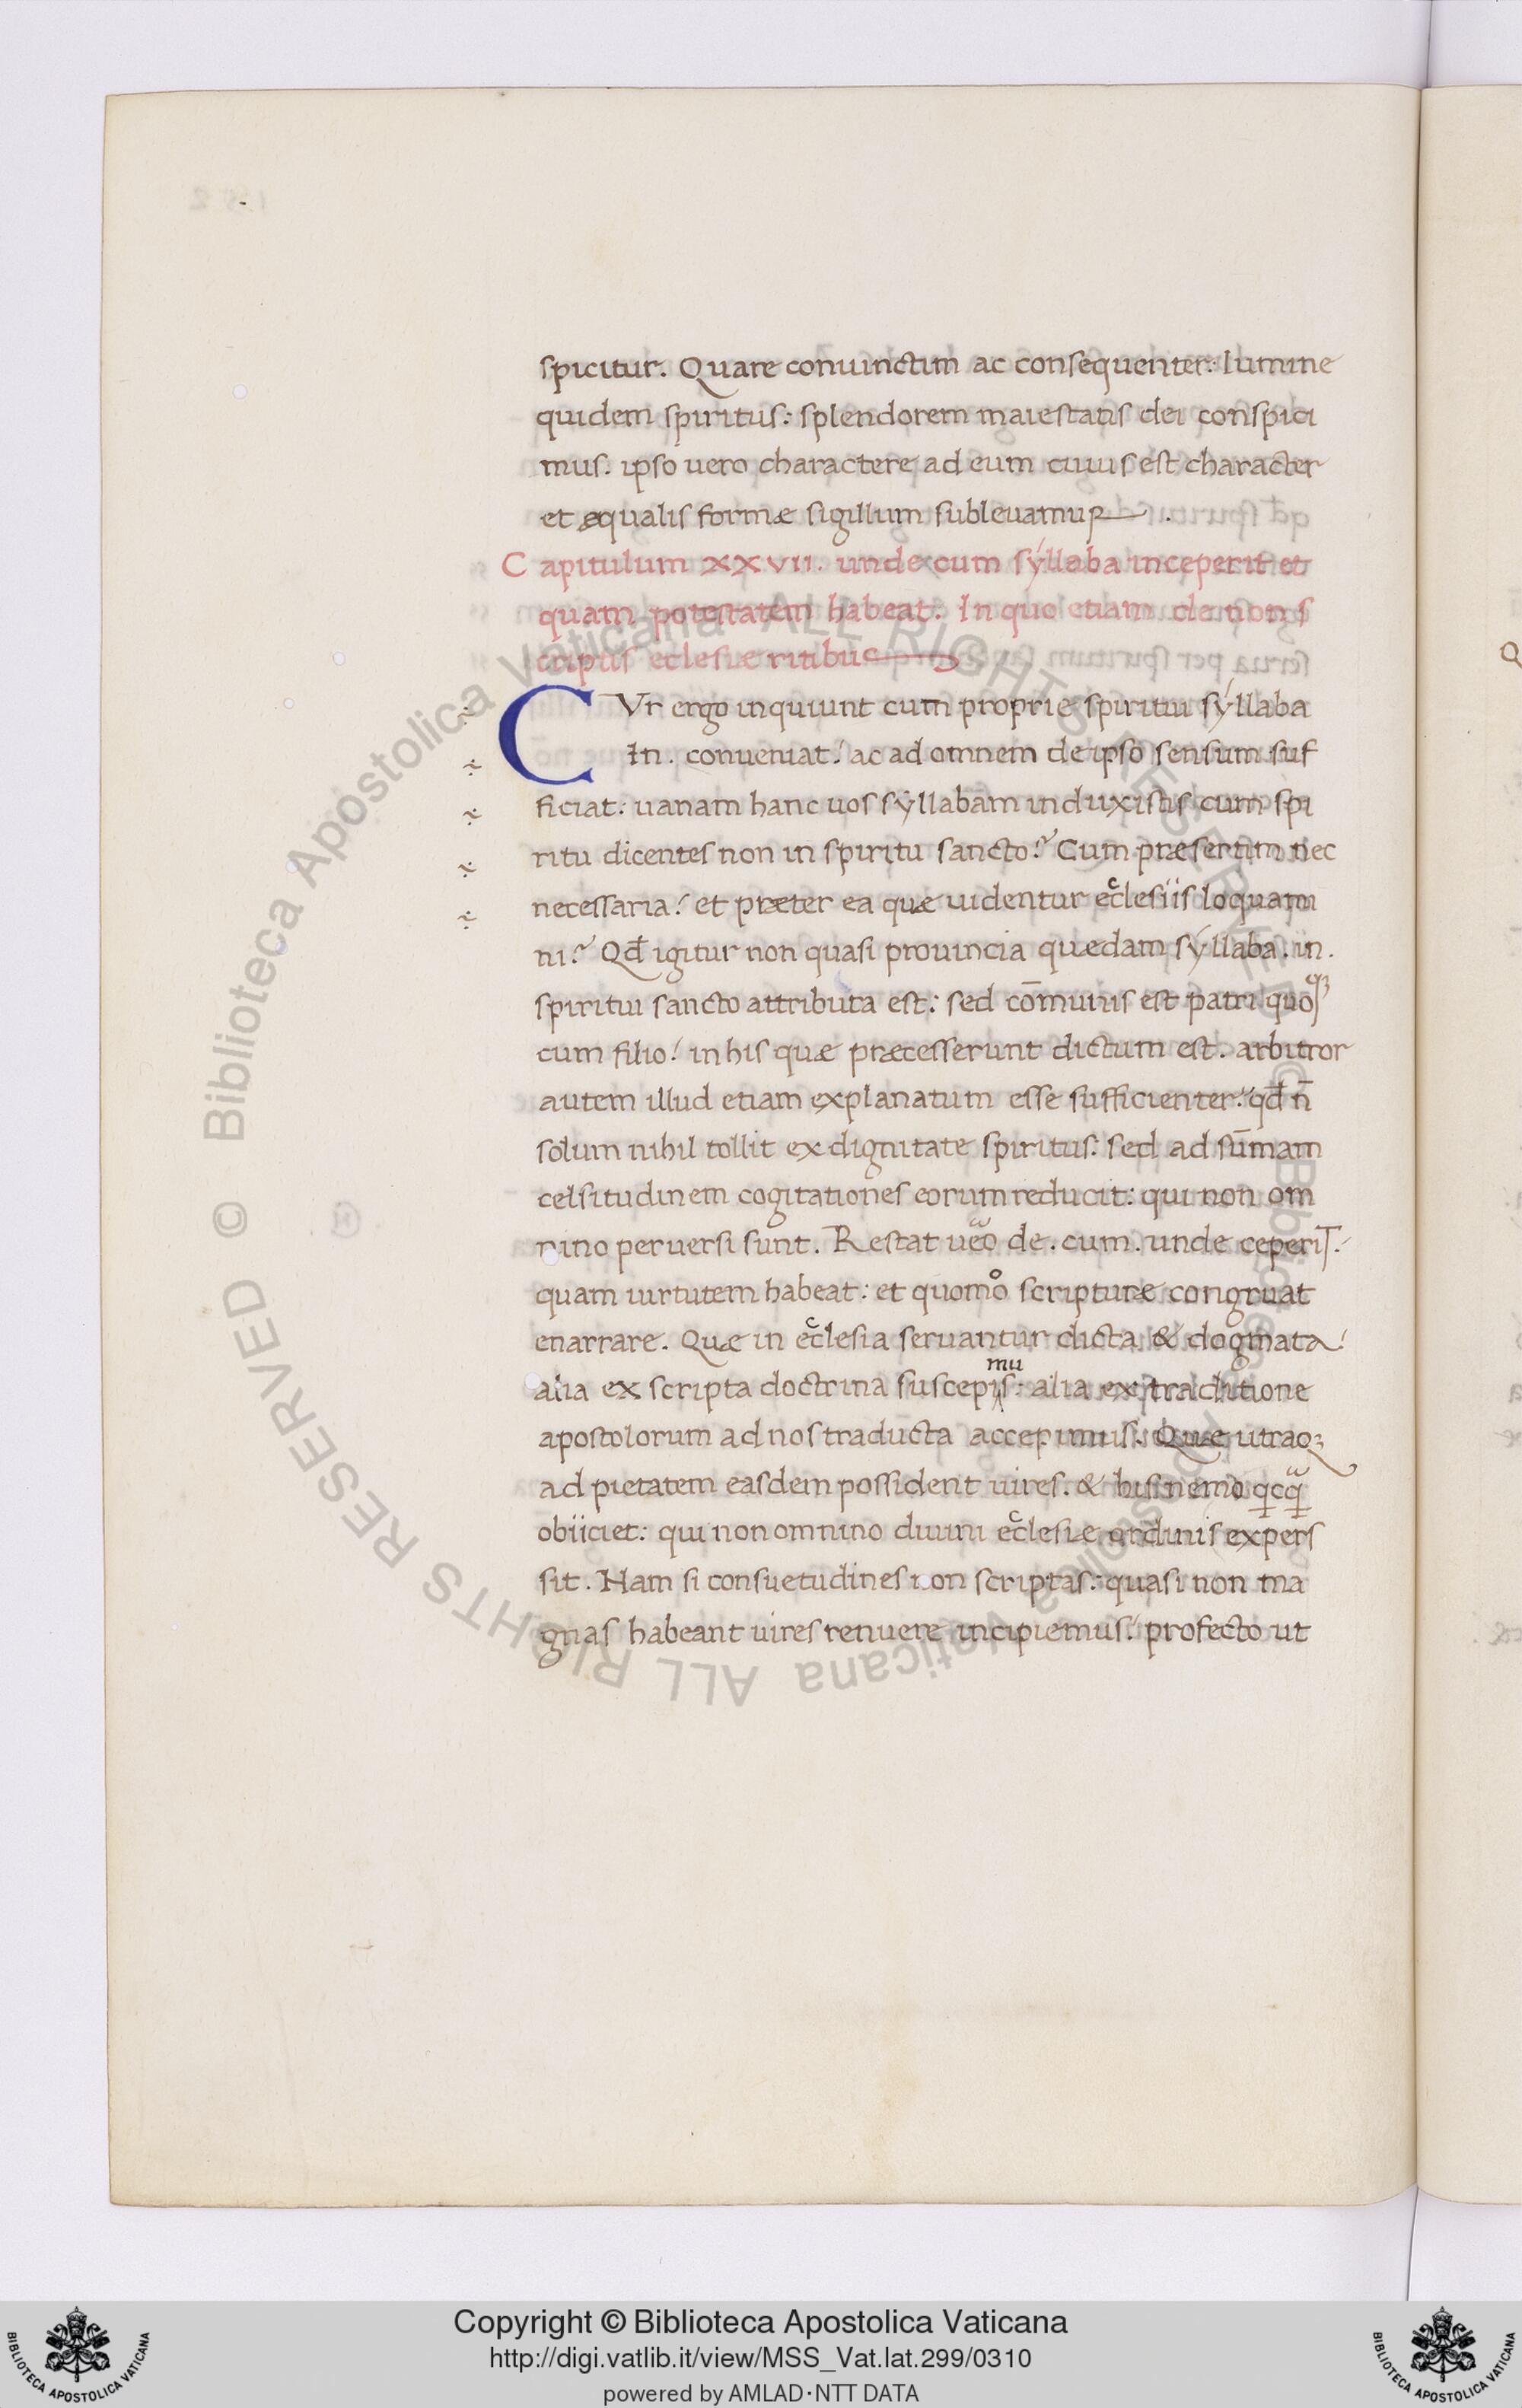 spicitur. Quare conuinctim ac consequenter: lumine
quidem spiritus: splendorem maiestatis dei conspici
mus. ipso uero charactere ad eum cuius est character
et æqualis formæ sigillum subleuamur.
Capitulum XXVII. unde cum sýllaba inceperit et
quam potestatem habeat. In quo etiam de non s
criptis eclesiæ ritibus
CVr ergo inquiunt cum proprie spiritui sýllaba
In. conueniat! ac ad omnem de ipso sensum suf
ficiat: uanam hanc uos sýllabam induxistis cum spi
ritu dicentes non in spiritu sancto? Cum præsertim nec
necessaria! et præter ea quæ uidentur ecclesiis loquam
ni? Qđ igitur non quasi prouincia quædam sýllaba. in.
spiritui sancto attributa est: sed cōmunis est patri quoqꝫ
cum filio! in his quæ præcesserunt dictum est. arbitror
autem illud etiam explanatum esse sufficienter: qđ n̄
solum nihil tollit ex dignitate spiritus: sed ad sūmam
celsitudinem cogitationes eorum reducit: qui non om
nino peruersi sunt. Restat ueo de. cum. unde ceperit!
quam uirtutem habeat: et quomo scripturæ congruat
enarrare. Quæ in ecclesia seruantur dicta & dogmata!
alia ex scripta doctrina suscepimus: alia ex traditione
apostolorum ad nos traducta accepimus. Quæ utraqꝫ
ad pietatem easdem possident uires. & his nemo qicqi
obiiciet: qui non omnino diuini ecclesiæ ordinis expers
sit. Nam si consuetudines non scriptas: quasi non ma
gnas habeant uires renuere incipiemus! profecto ut
Copyright © Biblioteca Apostolica Vaticana
http://digi.vatlib.it/view/MSS_Vat.lat.299/0310
powered by AMLAD·NTT DATA
BIBLIOTECA APOSTOLICA VATICANA
BIBLIOTECA APOSTOLICA VATICANA
© Biblioteca Apostolica Vaticana ALL RIGHTS RESERVED
© Biblioteca Apostolica Vaticana ALL RIGHTS RESERVED